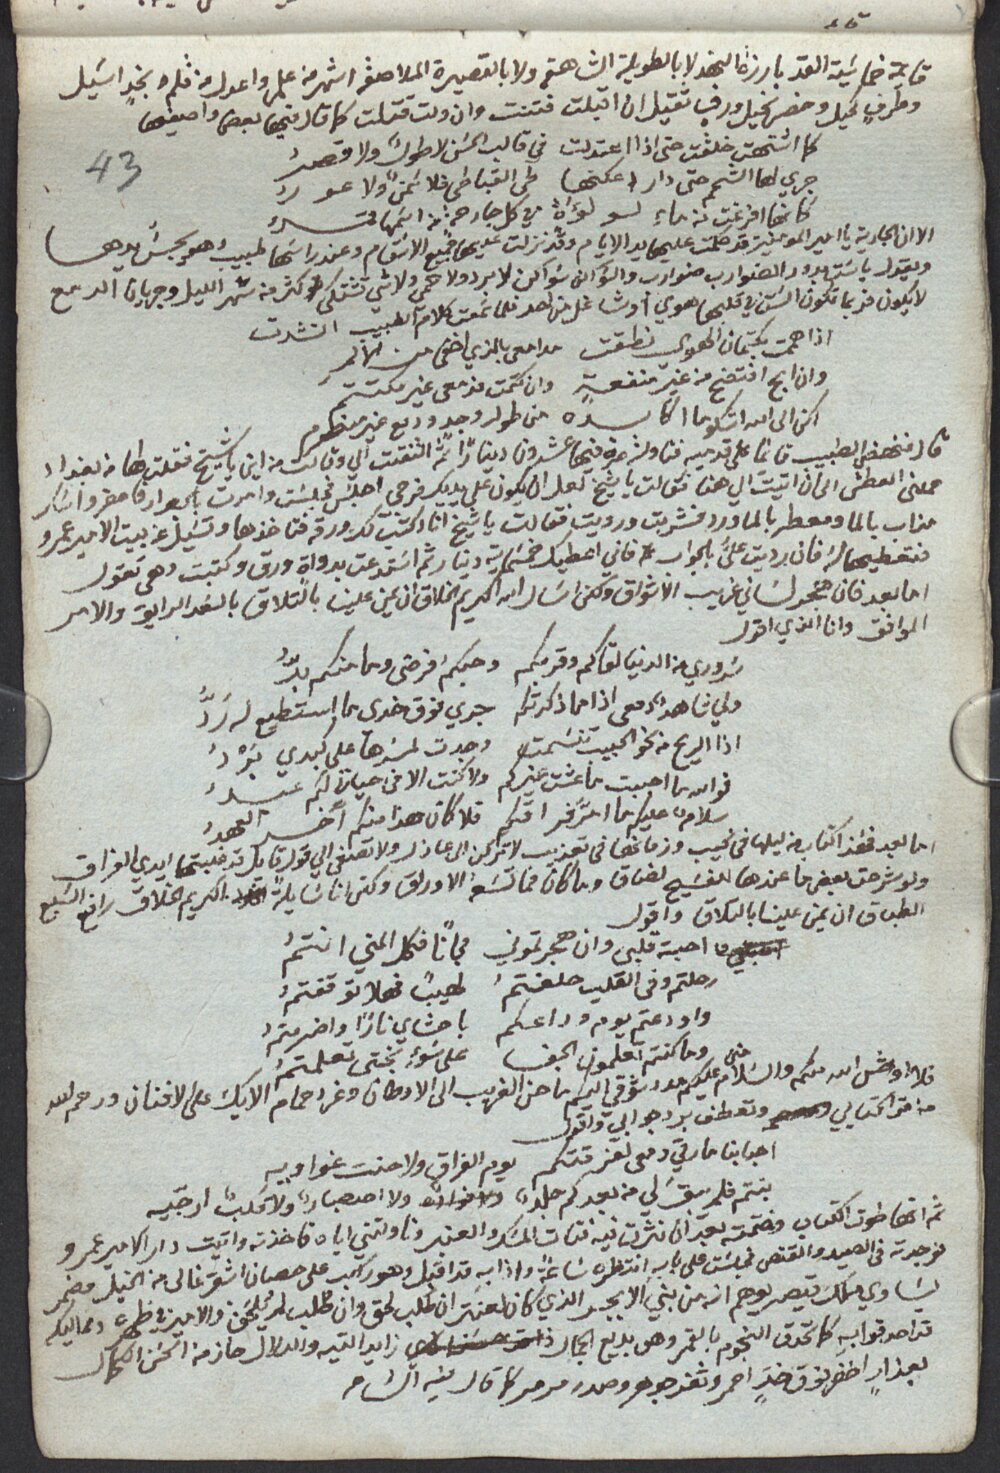 قايمة خماسية القد بارزة النهد لا بالطويلة الشاهقة ولا بالقصيرة الملاصقة اشهر من علم واعدل من قلم بخد اسيل
وطرف كحيل وخصر نحيل وردف ثقيل ان اقبلت فتنت وان ولت قتلت كما قال فيها بعض واصفيها
43
كما اشتهت خلقت حتى اذا اعتدلت في قالب الحسن لا طول ولا قصر
جرى لها الشحم حتى دار اعكنها طي القباطي فلا سمن ولا عور
كأنها افرغت من ماء لولوة في كل جارحة من اسمها قمر
الا ان الجارية يا امير المومنين قد دخلت عليها يد الايام وقد نزلت عليها جميع الاسقام وعند راسها طبيب وهو يجس يدها
ويقول يا ستي بدور الضوارب ضوارب والسواكن سواكن لا برد ولا حمى ولا شي تشتكي اكثر من سهر الليل وجريان الدمع
لا يكون فربما تكون الست في قلبها هوى او شاغل من احد فلما سمعت كلام الطبيب انشدت
اذا هممت بكتمان الهوى نطقت مدامعي بالذي اخفي من الالم
وان ابح افتضح من غير منفعة وان كتمت فدمعي غير مكتتم
لكن الى الله اشكو ما اكابده من طول وجد ودمع غير منصرم
قال فنهض الطبيب قايما على قدميه فناولته صرة فيها عشرون دينارا ثم التفتت الي وقالت من اين يا شيخ فقلت لها من بغداد
حملني العطش الى ان اتيت الى هنا فقالت يا شيخ لعل ان يكون على يديك فرجي اجلس فجلست وامرت باحضار
مذاب بالما ومعطر بالماورد فشربت ورويت فقالت يا شيخ انا اكتب لك ورقة فتاخذها وتسيل عن بيت الامير عمرو
فتعطيها له فان رديت علي بالجواب فاني اعطيك خمسماية دينار ثم استدعت بدواة وورق وكتبت وهي تقول
اما بعد فان لساني غريب الاشواق ولكن اسال الله الكريم الخلاق ان يمن علينا بالتلاق بالسعد الرايق والامر
الموافق وانا الذي اقول
سروري من الدنيا لقاكم وقربكم وحبكم فرضي وما منكم بد
ولي شاهد دمعي اذا ما ذكرتكم جرى فوق خدي ما استطيع له رد
اذا الريح من نحو الحبيب تنسمت وجدت لمسراها على كبدي برد
فوالله ما احببت ما عشت غيركم ولا كنت الا في حياتي لكم عبد
سلام عليكم ما امر فراقكم فلا كان هذا منكم آخر العهد
اما بعد فهذا الكتاب من ليلها في نحيب ونهارها في تعذيب لا تركن الى عاذل ولا تصغي الى قول قايل قد غلبتها ايدي الفراق
ولو شرحت بعض ما عندها للفسيح لضاق وما كان مما تسعه الاوراق ولكن انا سايلة الكريم الخلاق رافع السبع
الطباق ان يمن علينا بالتلاق واقول
احبة قلبي وان هجرتموني فكل المنى انتم
رحلتم وفي القلب خلفتم لهيبا فهلا توقفتم
واودعتم يوم وداعكم باحشاي نارا واضرمتم
وما كنتم تعلمون الجفا على سوء بختي تعلمتم
فلا اوحش الله منكم والسلام مني عليكم عدد شوقي اليكم ما حن الغريب الى الاوطان وغرد حمام الايك على الافنان ورحم الله
من قرا كتابي وتعطف برد جوابي واقول
احبابنا ما رقى دمعي لفرقتكم يوم الفراق ولا حنت غواديه
بنتم فلم يبق لي من بعدكم جلد ولا فواد ولا اصطبار ولا قلب ارجيه
ثم انها طوت الكتاب وختمته بعد ان نثرت فيه فتات المسك والعنبر وناولتني اياه فاخذته واتيت دار الامير عمرو
فوجدته في الصيد والقنص فجلست على بابه انتظره ساعة واذا به قد اقبل وهو راكب على حصان اشقر غالي من الخيل مضمر
يساوي ملك قيصر لوهم انه من بني الابجر الذي كان لعنتر ان طلب لحق وان طلب لم يلحق والامير في ظهره ومماليكه
قد احدقوا به كما تحدق النجوم بالقمر وهو بديع الجمال زايد التيه والدلال حاز من الحسن الكمال
بعذار اخضر فوق خد احمر وثغر جوهر وصدر مرمر كما قال فيه الشاعر